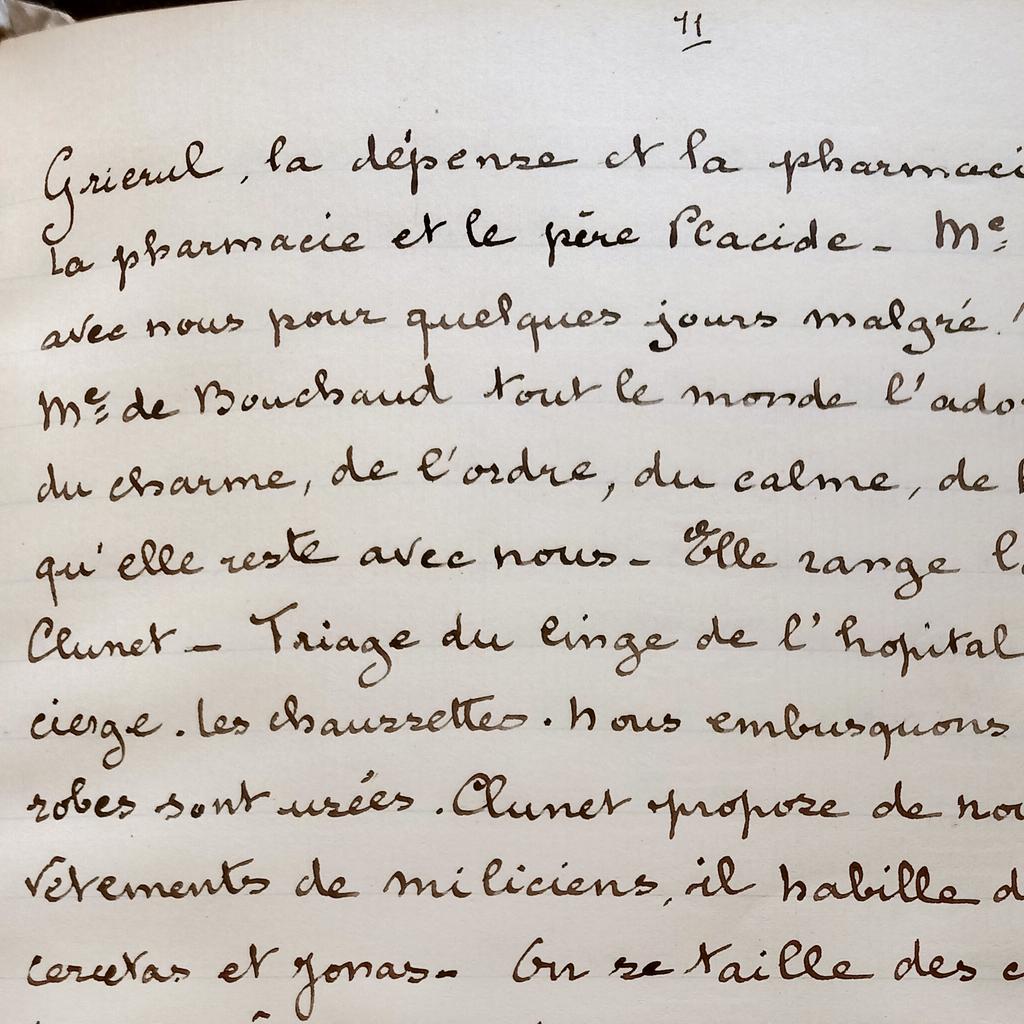 11
Grierul, la dépense et la pharmaci
La pharmacie et le père Placide - Me
avec nous pour quelques jours malgré
Me de Bouchaud tout le monde l'ado
du charme, de l'ordre, du calme, de
qu'elle reste avec nous - Elle range l
Clunet - Triage du linge de l'hopital
cierge. les chaussettes. nous embusquons
robes sont usées. Clunet propose de nou
vêtements de miliciens, il habille d
et Jonas - On se taille des c